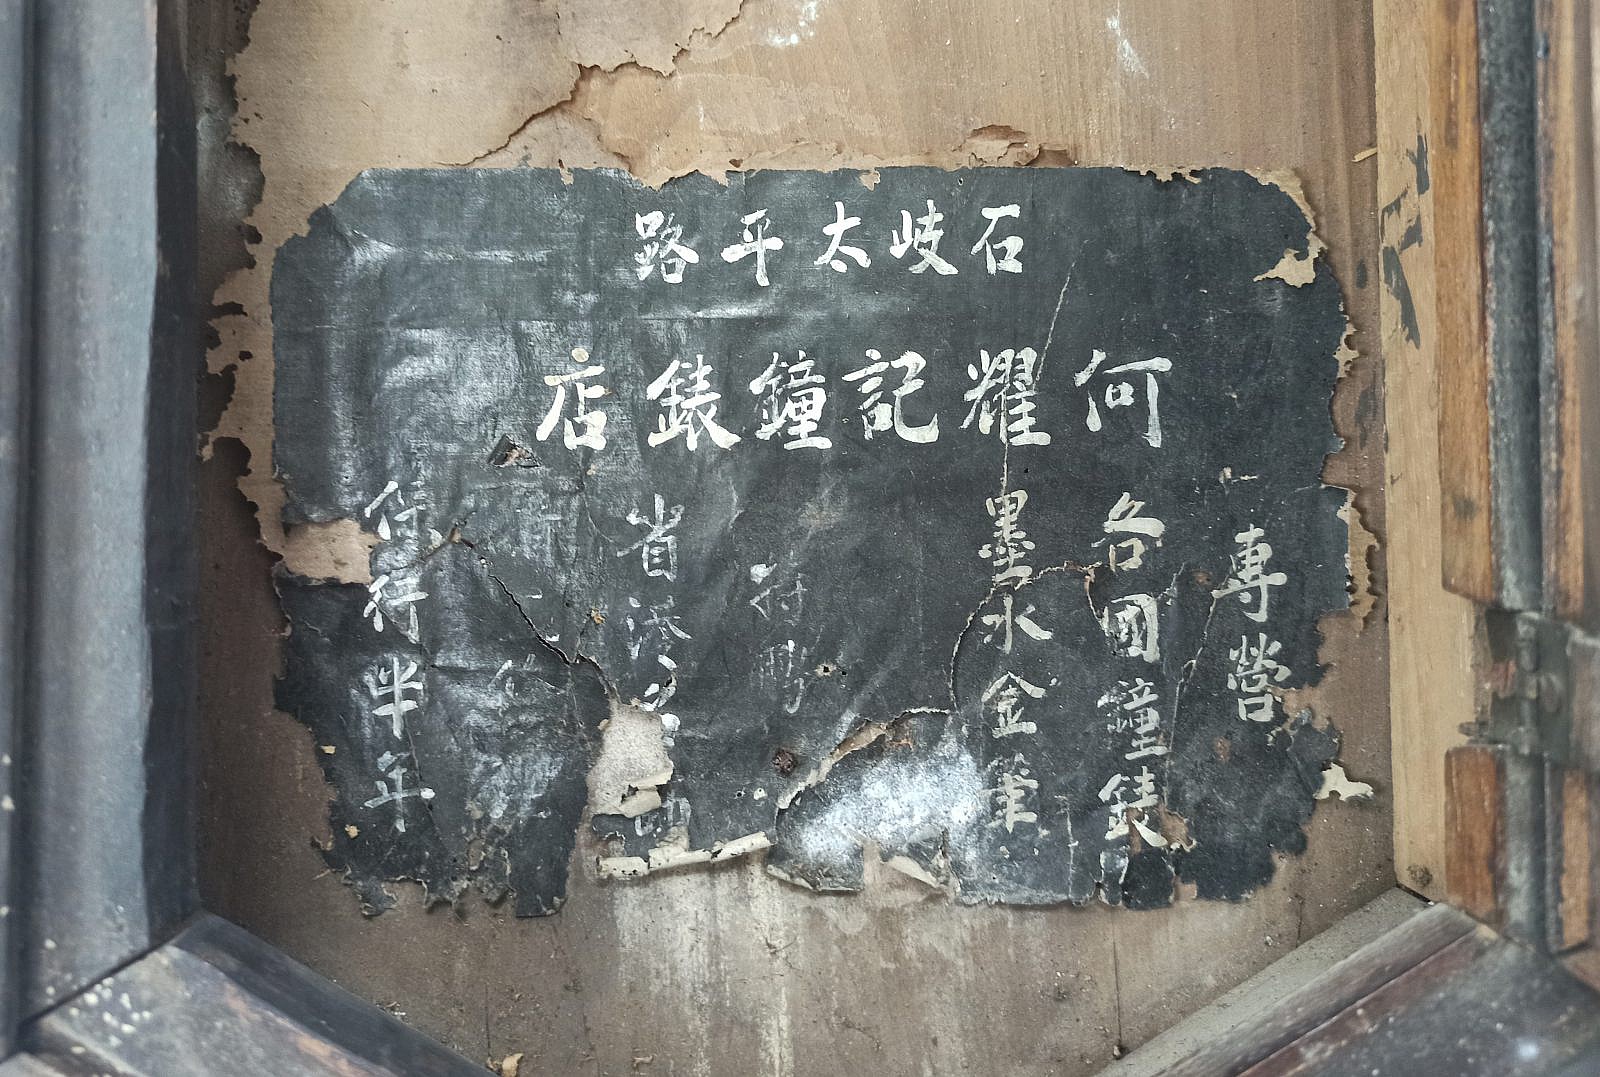 石岐太平路
何耀記鐘錶店
專營
各國鐘錶
墨水金筆
特聘
省港
保行半年